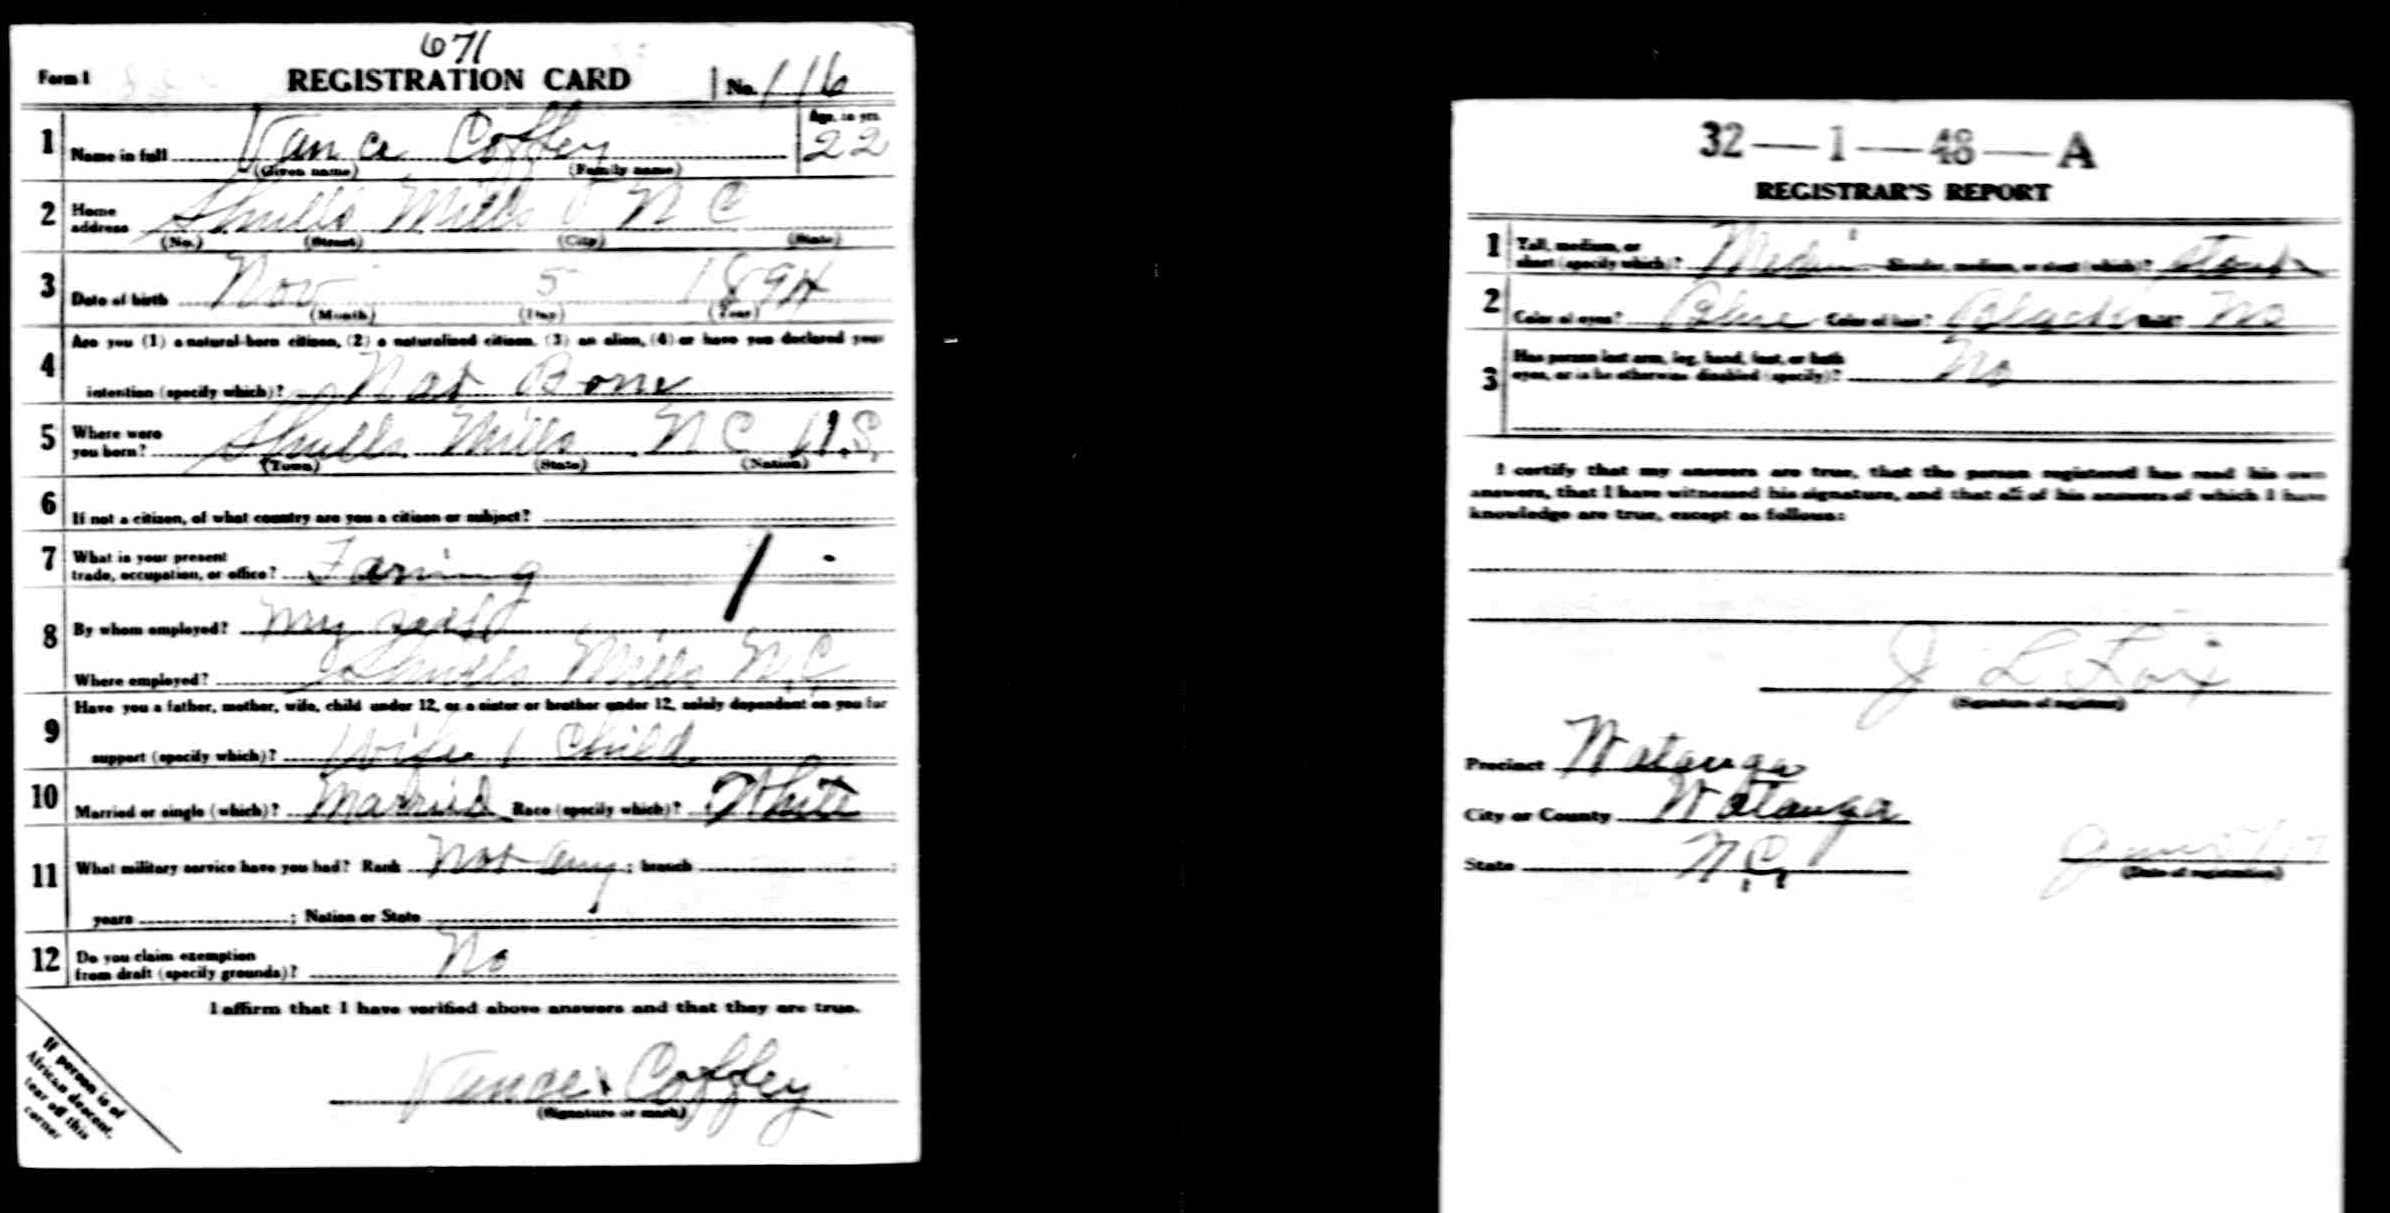 671
Form 1 REGISTRATION CARD No. 116
1 Name in full Vance Coffey Age, in yrs. 22
(Given name) (Family name)
2 Home address Shulls Mills N C
(No.) (Street) (City) (State)
3 Date of birth Nov 5 1894
(Month) (Day) (Year)
4 Are you (1) a natural-born citizen, (2) a naturalized citizen, (3) an alien, (4) or have you declared your
intention (specify which)? Nat Born
5 Where were you born? Shulls Mills N C U.S.
(Town) (State) (Nation)
6 If not a citizen, of what country are you a citizen or subject?
7 What is your present
trade, occupation, or office? Faming
8 By whom employed? My self
Where employed? Shulls Mills N.C
9 Have you a father, mother, wife, child under 12, or a sister or brother under 12, solely dependent on you for
support (specify which)? Wife 1 Child
10 Married or single (which)? Married Race (specify which)? White
11 What military service have you had? Rank Not any ; branch ;
years ; Nation or State
12 Do you claim exemption
from draft (specify grounds)? No
I affirm that I have verified above answers and that they are true.
Vance Coffey
(Signature or mark)
If person is of
African descent,
tear off this
corner
32—1—48—A
REGISTRAR'S REPORT
1 Tall, medium, or
short (specify which)? Slender, medium, or stout (which)? Stout
2 Color of eyes? Blue Color of hair? Bald? No
3 Has person lost arm, leg, hand, foot, or both
eyes, or is he otherwise disabled (specify)? No
I certify that my answers are true, that the person registered has read his own
answers, that I have witnessed his signature, and that all of his answers of which I have
knowledge are true, except as follows:
J L Fox
(Signature of registrar)
Precinct Watauga
City or County Watauga
State N.C.
June 5/17
(Date of registration)